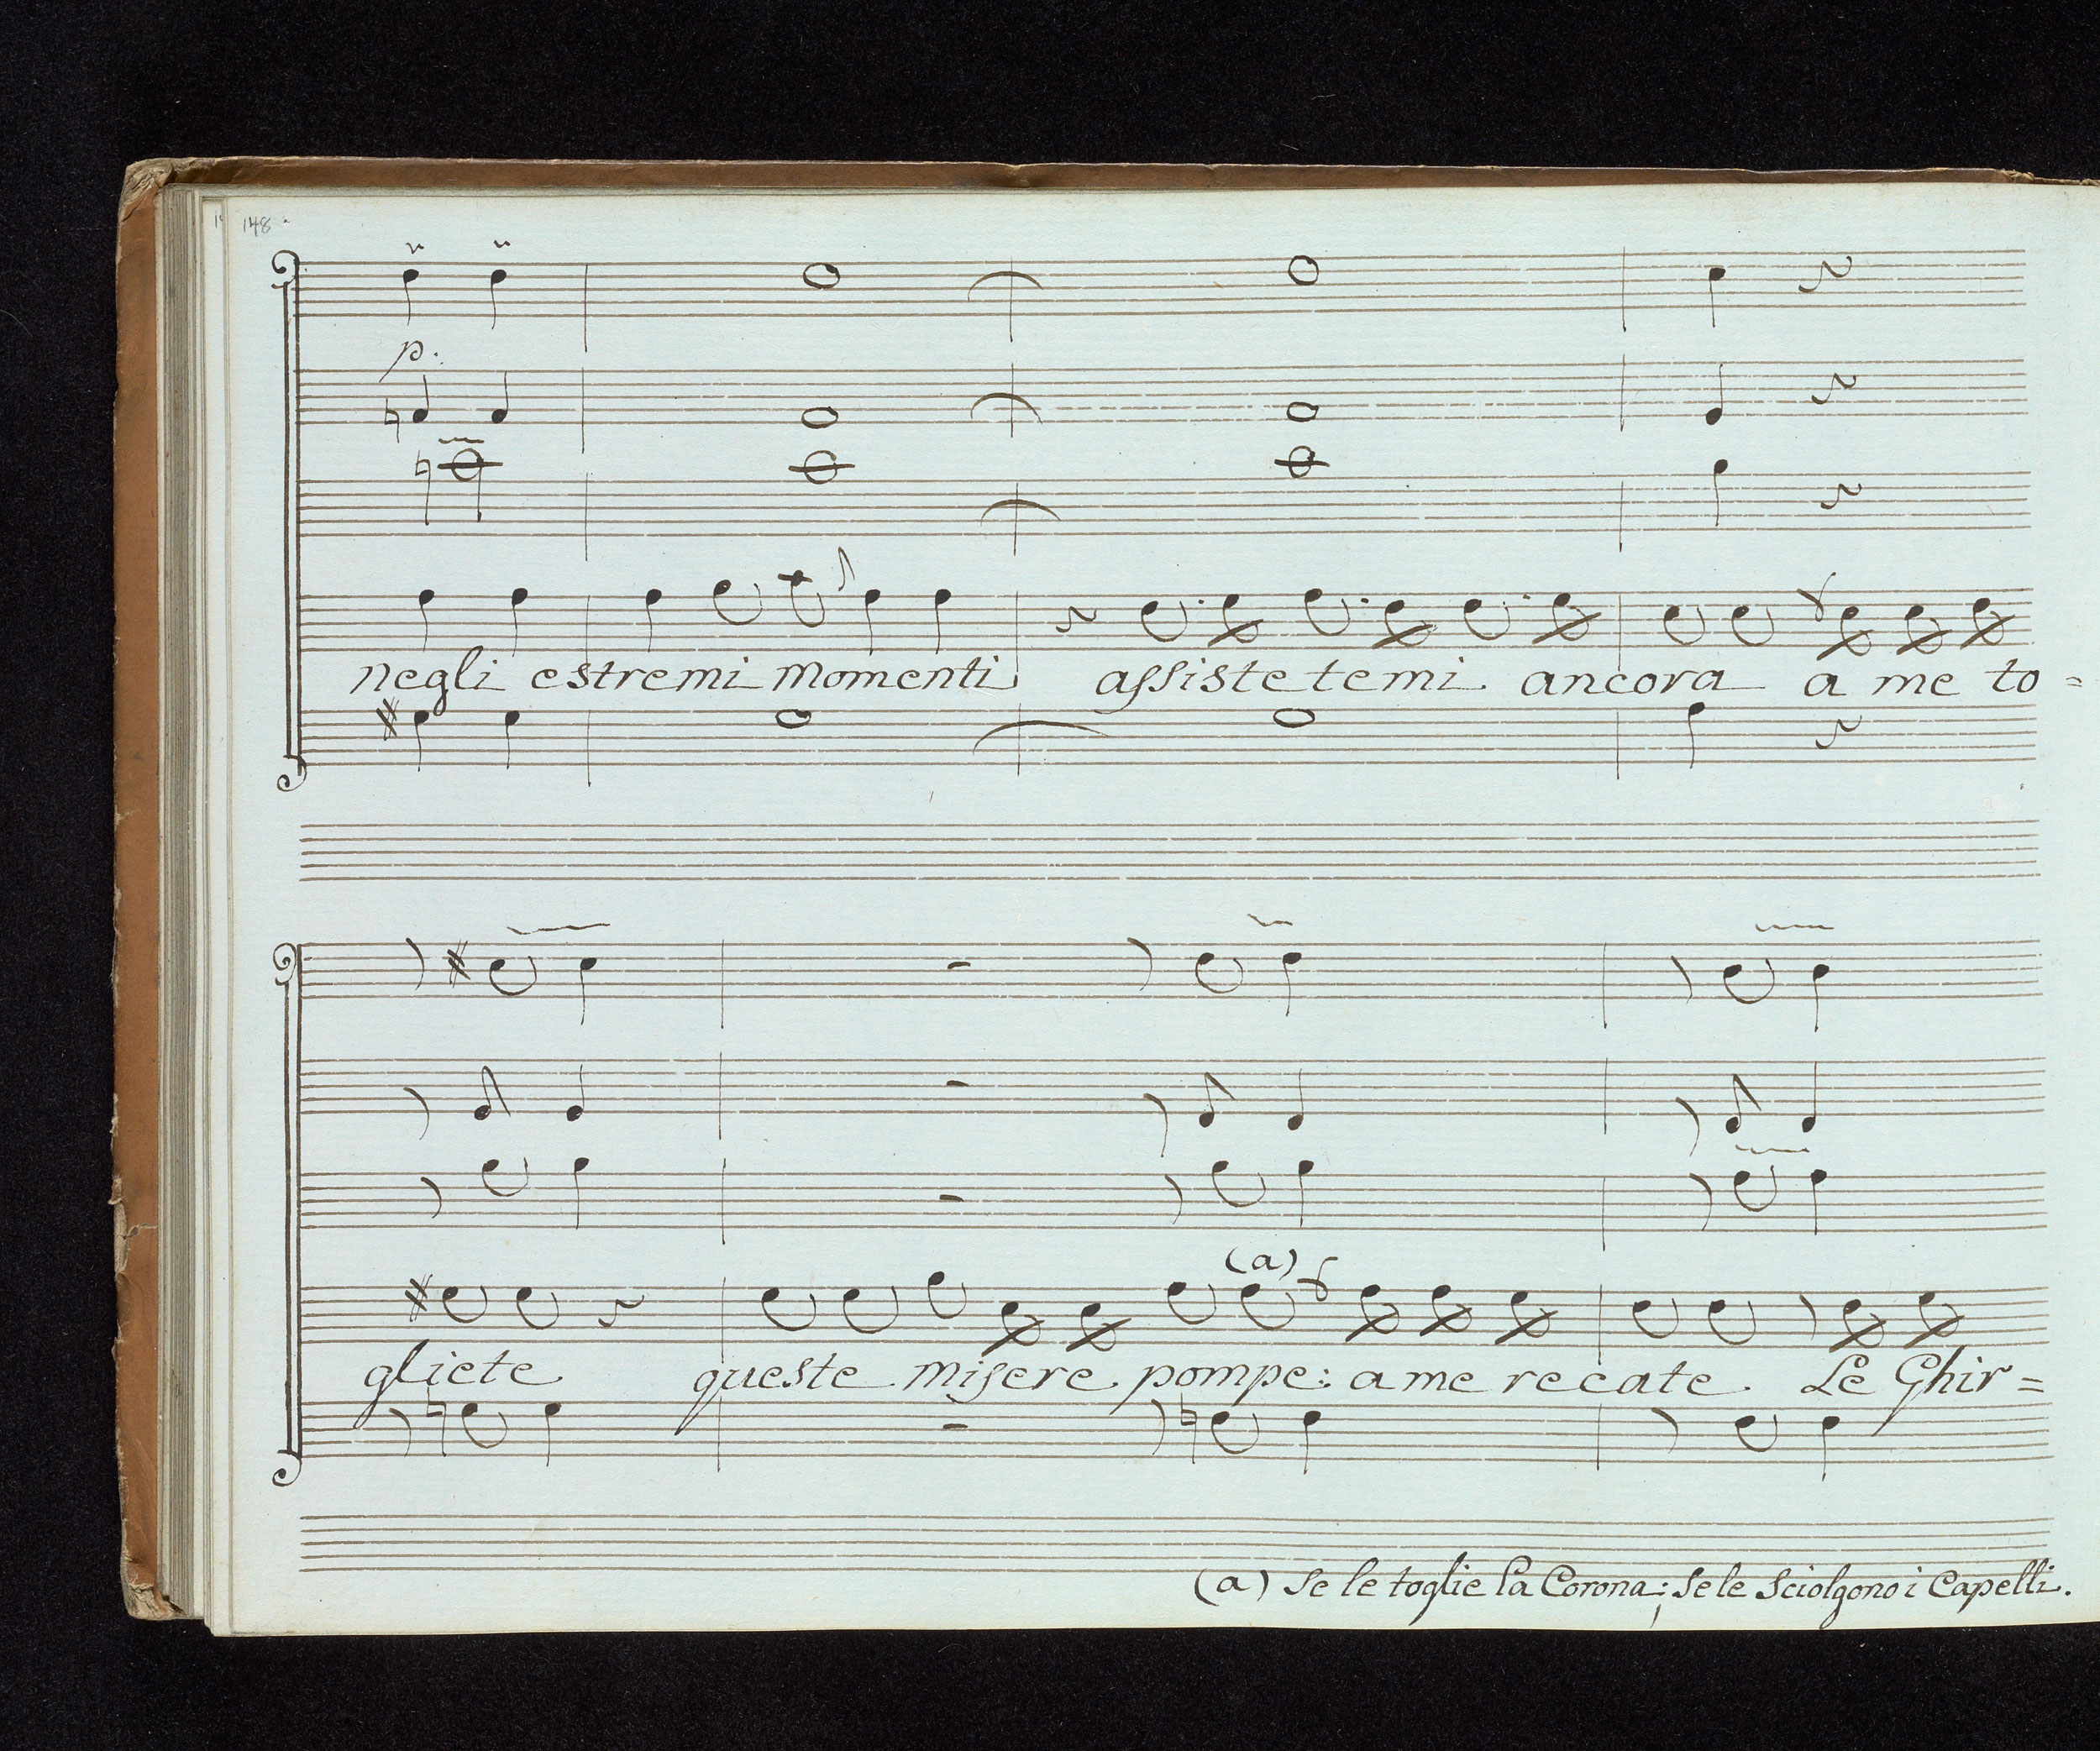 148
p.
negli estremi momenti assistetemi ancora a me to=
(a)
gliete queste misere pompe: a me recate Le Ghir=
(a) Se le toglie la Corona; se le Sciolgono i Capelli.